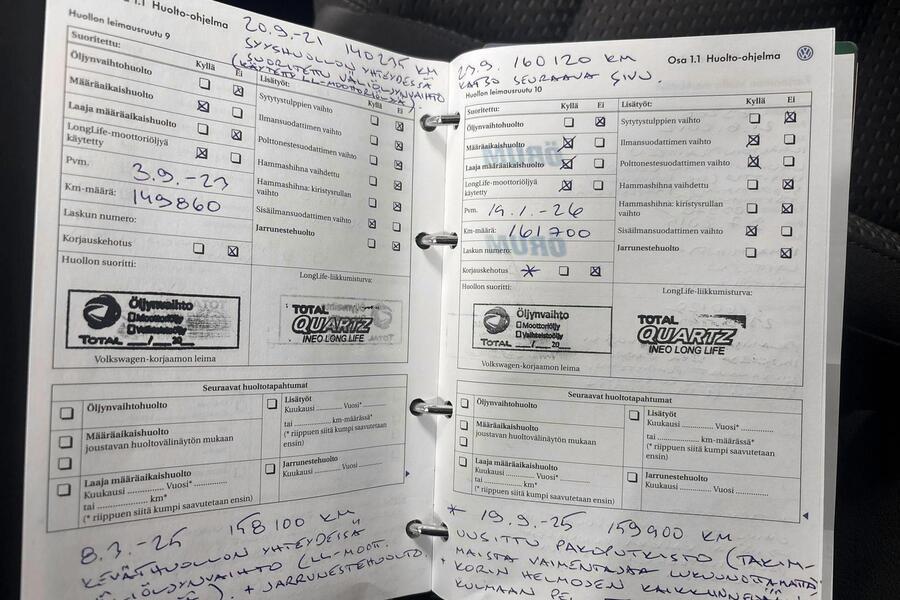 1.1 Huolto-ohjelma
20.9.-21 140235 KM
SYYSHUOLLON YHTEYDESSÄ
SUORITETTU VÄLIÖLJYNVAIHTO
(KÄYTETTY LL-MOOTTORIÖLJYÄ).
Huollon leimausruutu 9
Suoritettu:
Kyllä Ei
Öljynvaihtohuolto
Määräaikaishuolto
Laaja määräaikaishuolto
LongLife-moottoriöljyä
käytetty
Pvm. 3.9.-23
Km-määrä: 149860
Laskun numero:
Korjauskehotus
Huollon suoritti:
Lisätyöt:
Kyllä Ei
Sytytystulppien vaihto
Ilmansuodattimen vaihto
Polttonestesuodattimen vaihto
Hammashihna vaihdettu
Hammashihna: kiristysrullan
vaihto
Sisäilmansuodattimen vaihto
Jarrunestehuolto
LongLife-liikkumisturva:
Öljynvaihto
Moottoriöljy
Vaihteistoöljy
TOTAL __/__ 20__
TOTAL
QUARTZ
INEO LONG LIFE
Volkswagen-korjaamon leima
Seuraavat huoltotapahtumat
Öljynvaihtohuolto
Määräaikaishuolto
joustavan huoltovälinäytön mukaan
Laaja määräaikaishuolto
Kuukausi .............. Vuosi* ..............
tai .................... km*
(* riippuen siitä kumpi saavutetaan ensin)
Lisätyöt
Kuukausi ............ Vuosi*............
tai ................ km-määrässä*
(* riippuen siitä kumpi saavutetaan
ensin)
Jarrunestehuolto
Kuukausi ............ Vuosi ............
8.3.-25 158100 KM
KEVÄTHUOLLON YHTEYDESSÄ
VÄLIÖLJYNVAIHTO (LL-MOOTT.
+ JARRUNESTEHUOLTO.
Osa 1.1 Huolto-ohjelma
23.9. 160120 KM
KATSO SEURAAVA SIVU.
Huollon leimausruutu 10
Suoritettu:
Kyllä Ei
Öljynvaihtohuolto
Määräaikaishuolto
Laaja määräaikaishuolto
LongLife-moottoriöljyä
käytetty
Pvm. 19.1.-26
Km-määrä: 161700
Laskun numero:
Korjauskehotus *
Huollon suoritti:
Lisätyöt:
Kyllä Ei
Sytytystulppien vaihto
Ilmansuodattimen vaihto
Polttonestesuodattimen vaihto
Hammashihna vaihdettu
Hammashihna: kiristysrullan
vaihto
Sisäilmansuodattimen vaihto
Jarrunestehuolto
LongLife-liikkumisturva:
Öljynvaihto
Moottoriöljy
Vaihteistoöljy
TOTAL __/__ 20__
TOTAL
QUARTZ
INEO LONG LIFE
Volkswagen-korjaamon leima
Seuraavat huoltotapahtumat
Öljynvaihtohuolto
Määräaikaishuolto
joustavan huoltovälinäytön mukaan
Laaja määräaikaishuolto
Kuukausi .............. Vuosi* ..............
tai .................... km*
(* riippuen siitä kumpi saavutetaan ensin)
Lisätyöt
Kuukausi ............ Vuosi*............
tai ................ km-määrässä*
(* riippuen siitä kumpi saavutetaan
ensin)
Jarrunestehuolto
Kuukausi ............ Vuosi ............
* 19.9.-25 159900 KM
UUSITTU PAKOPUTKISTO (TAKIM-
MAISTA VAIMENTAJAA LUKUUNOTTAMATTA)
+ KORIN HELMOJEN
KULMAAN